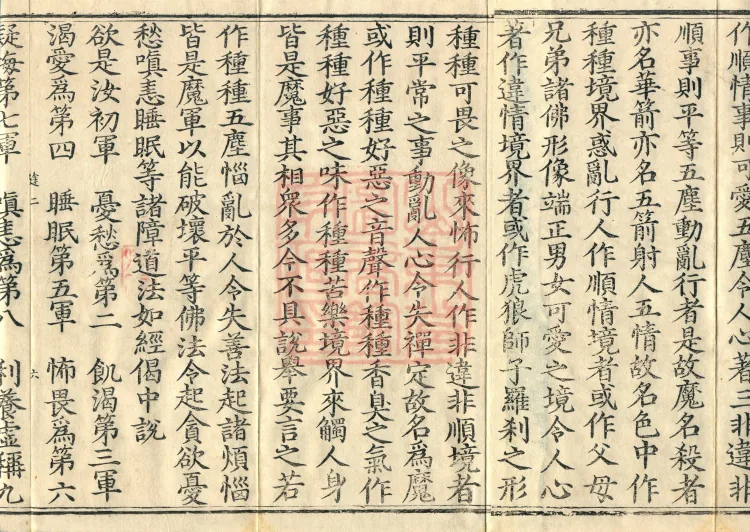 作順情事則可愛五塵令人心著三非違非
順事則平等五塵動亂行者是故魔名殺者
亦名華箭亦名五箭射人五情故名色中作
種種境界惑亂行人作順情境者或作父母
兄弟諸佛形像端正男女可愛之境令人心
著作違情境界者或作虎狼師子羅剎之形
種種可畏之像來怖行人作非違非順境者
則平常之事動亂人心令失禪定故名為魔
或作種種好惡之音聲作種種香臭之氣作
種種好惡之味作種種苦樂境界來觸人身
皆是魔事其相眾多今不具說舉要言之若
作種種五塵惱亂於人令失善法起諸煩惱
皆是魔軍以能破壞平等佛法令起貪欲憂
愁嗔恚睡眠等諸障道法如經偈中說
欲是汝初軍 憂愁為第二 飢渴第三軍
渴愛為第四 睡眠第五軍 怖畏為第六
疑悔第七軍 嗔恚為第八 利養虛稱九